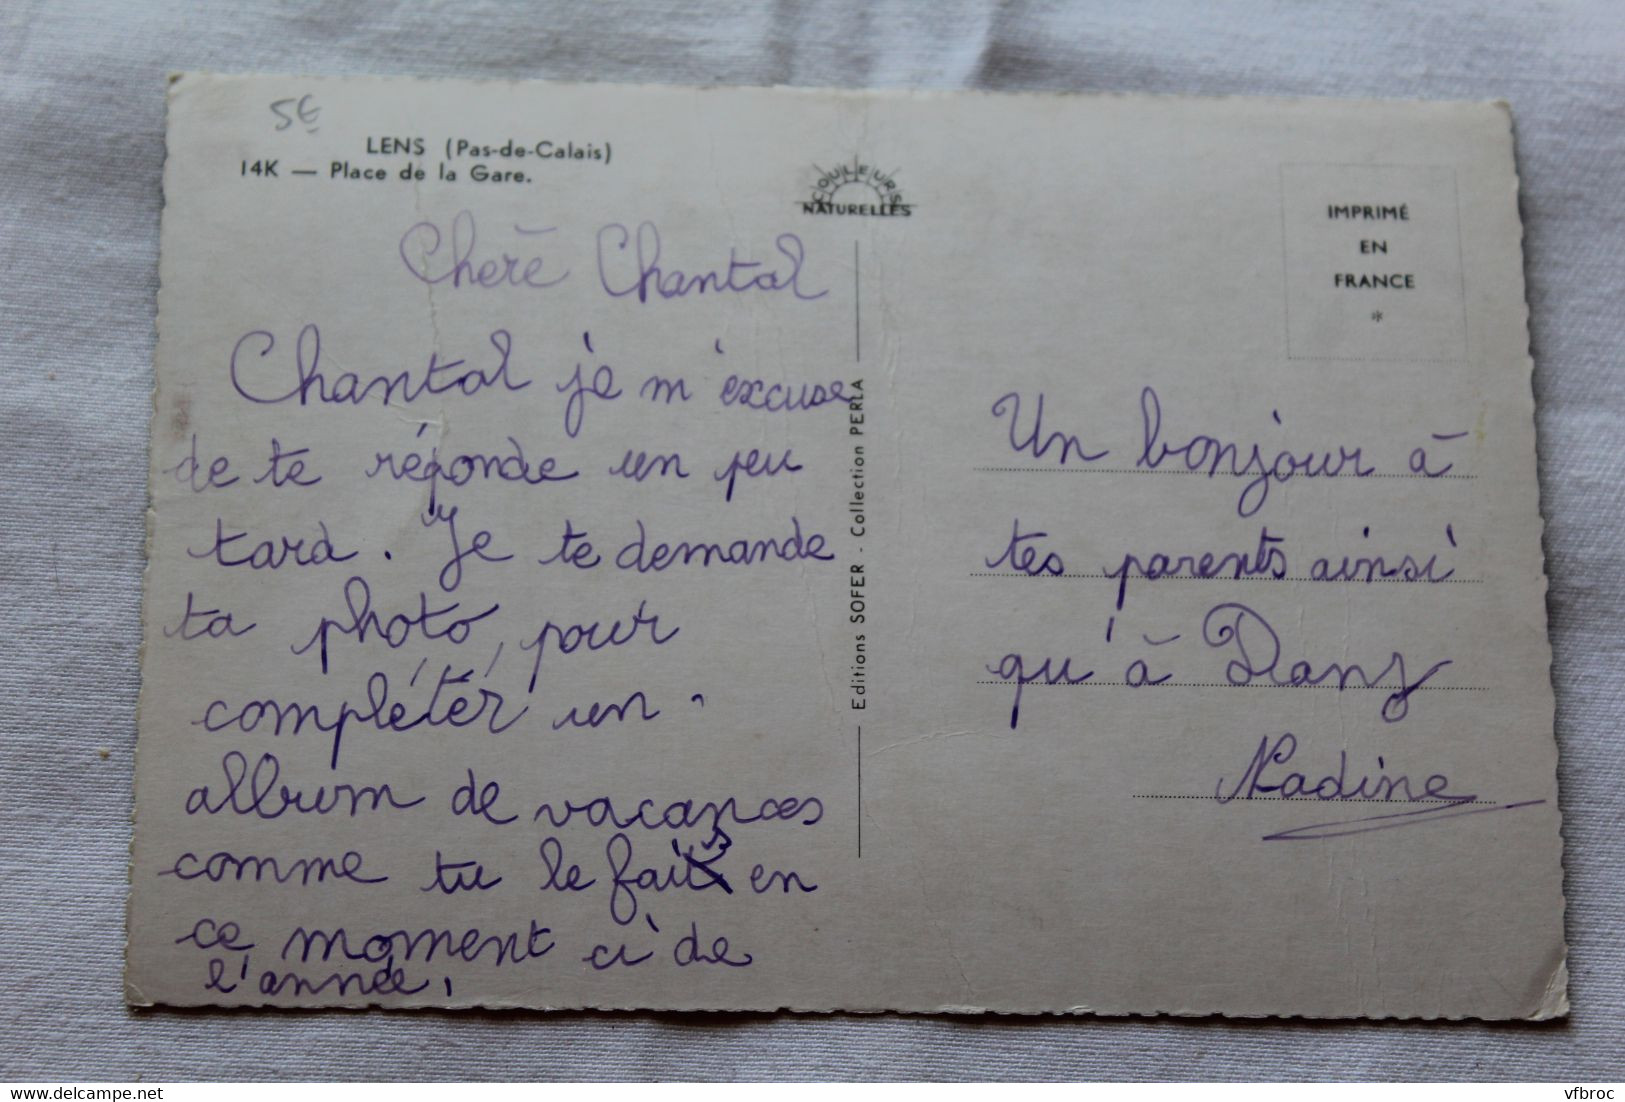 5€
LENS (Pas-de-Calais)
14K — Place de la Gare.
COULEURS
NATURELLES
IMPRIMÉ
EN
FRANCE
*
Editions SOFER - Collection PERLA
Chère Chantal
Chantal je m'excuse
de te réponde un peu
tard. Je te demande
ta photo, pour
compléter un
album de vacances
comme tu le fais en
ce moment ci de
l'année.
Un bonjour à
tes parents ainsi
qu'à
Nadine
Delcampe.net
vfbroc